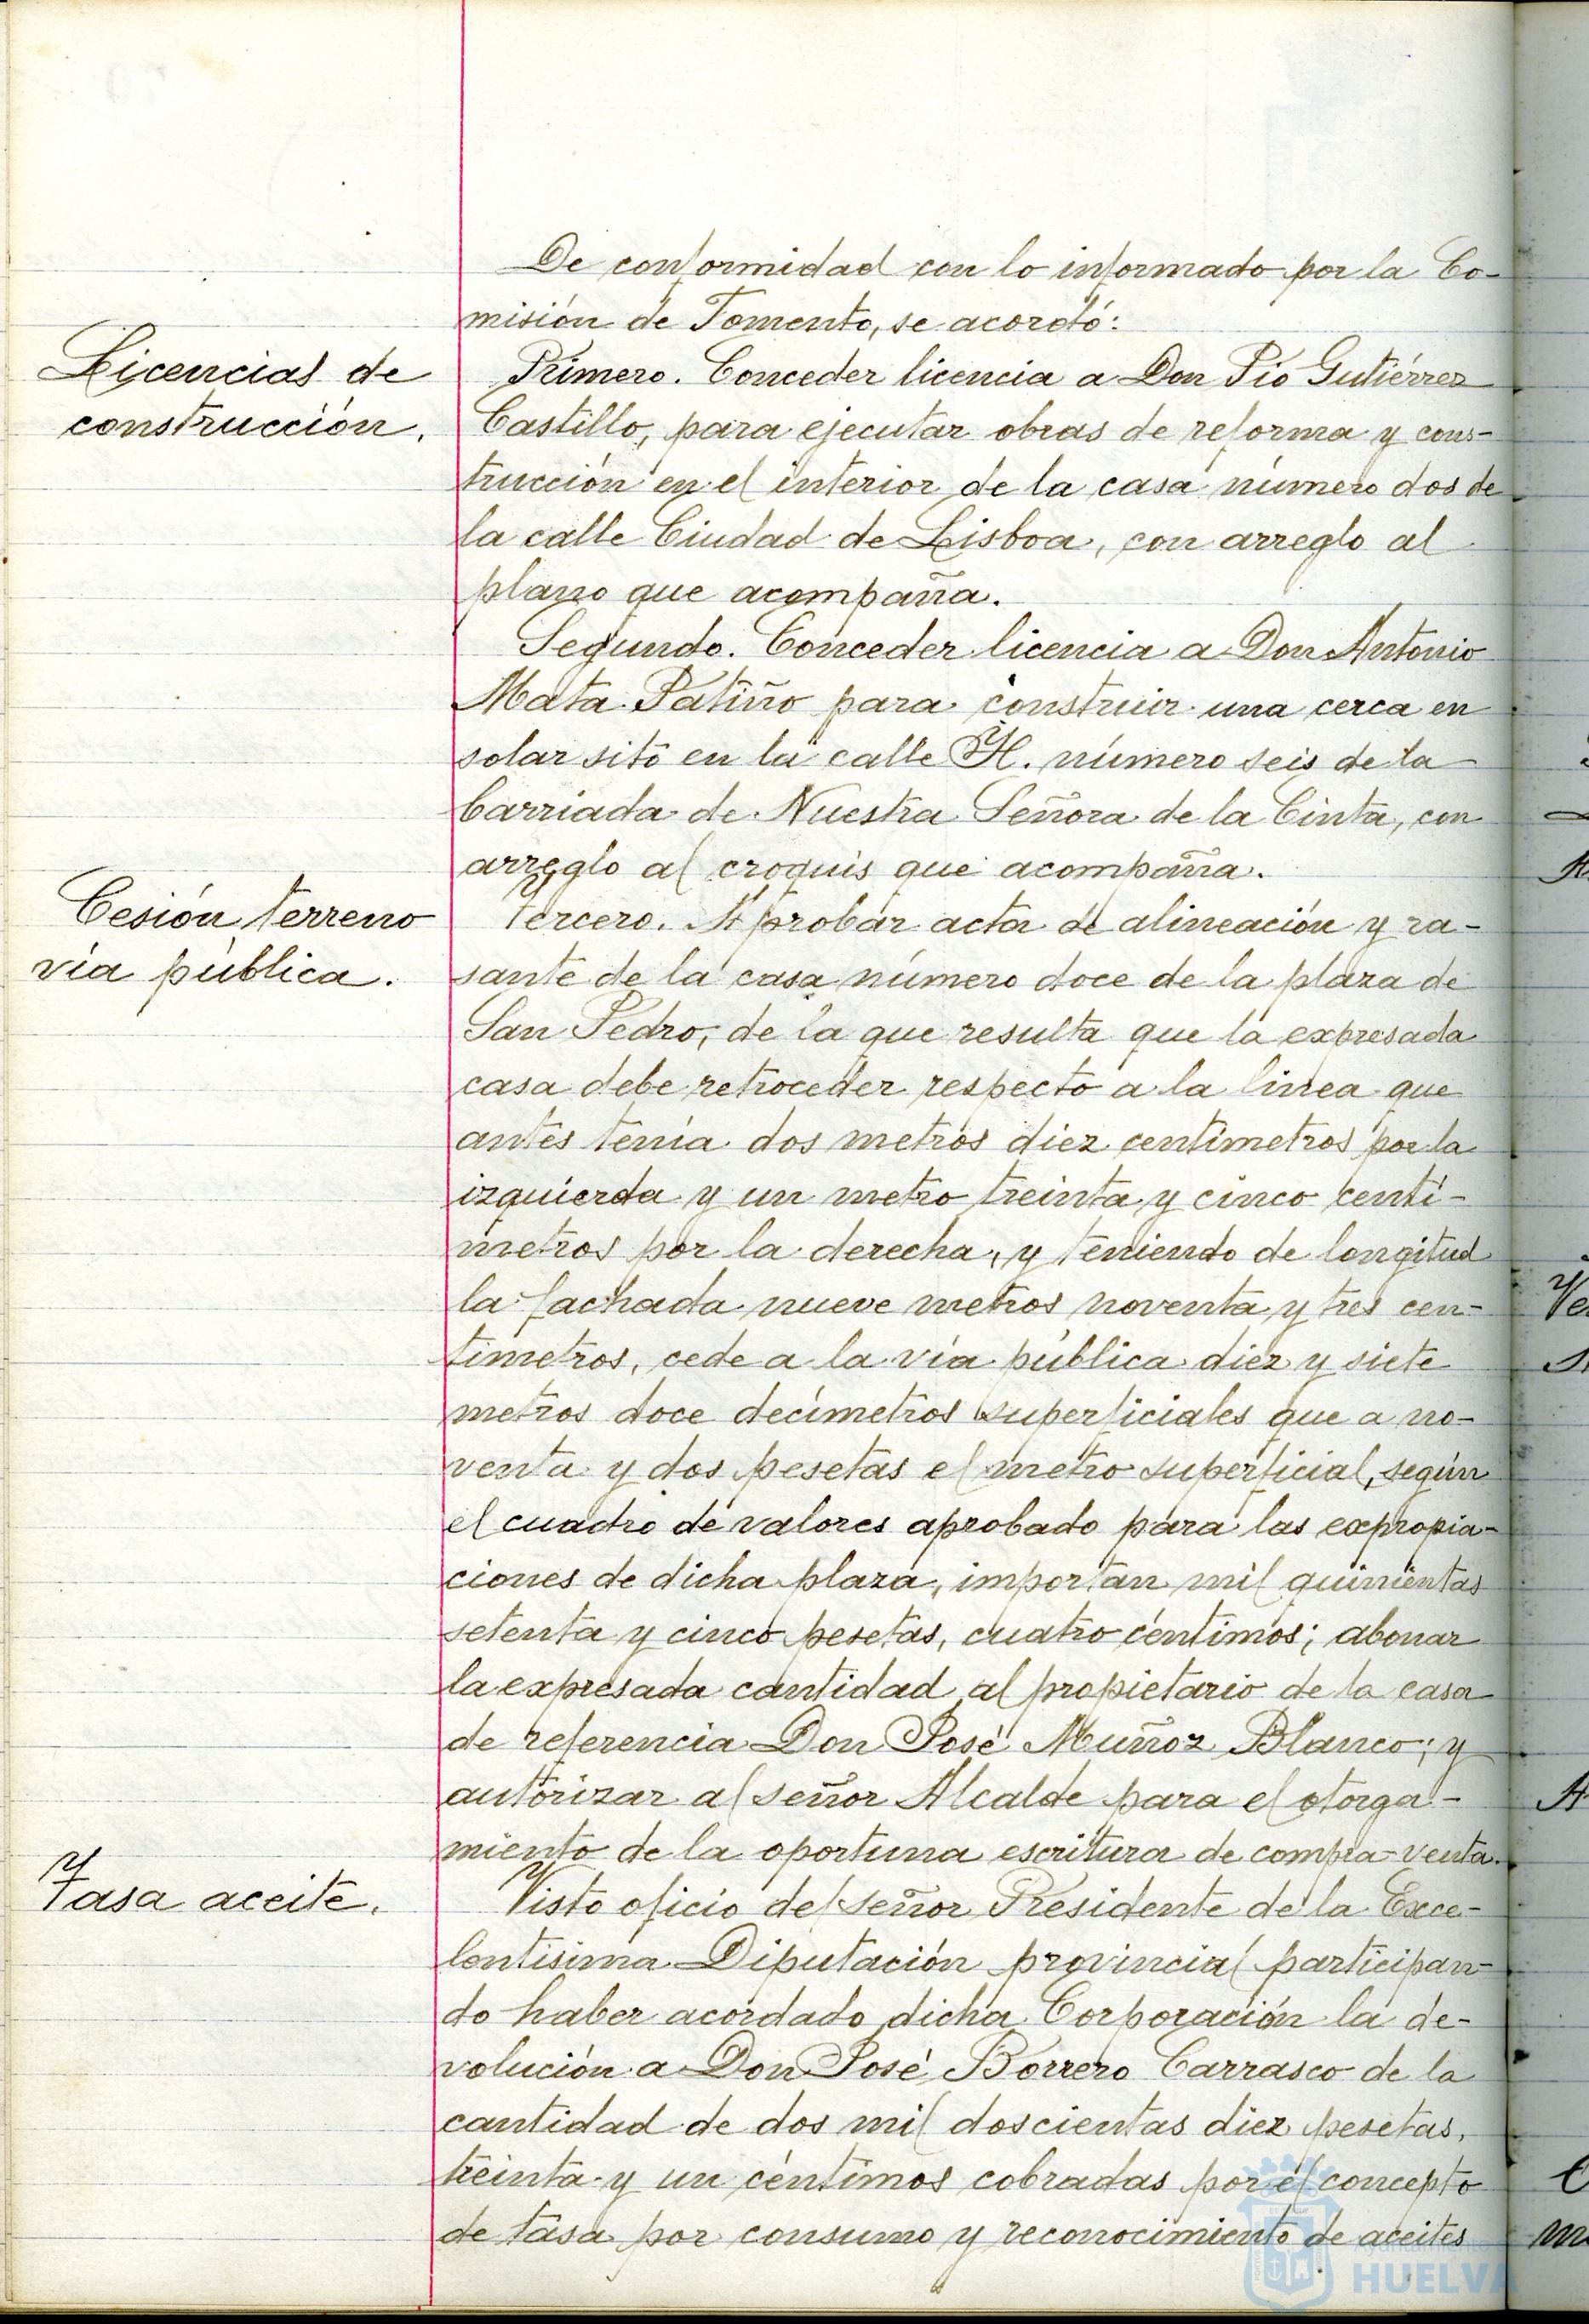 De conformidad con lo informado por la Co-
misión de Fomento, se acordó:
Licencias de
construcción.
Primero. Conceder licencia a Don Pío Gutiérrez
Castillo, para ejecutar obras de reforma y cons-
trucción en el interior de la casa número dos de
la calle Ciudad de Lisboa, con arreglo al
plano que acompaña.
Segundo. Conceder licencia a Don Antonio
Mata Patiño para construir una cerca en
solar sito en la calle H. número seis de la
barriada de Nuestra Señora de la Cinta, con
arreglo al croquis que acompaña.
Cesión terreno
vía pública.
Tercero. Aprobar acta de alineación y ra-
sante de la casa número doce de la plaza de
San Pedro, de la que resulta que la expresada
casa debe retroceder respecto a la línea que
antes tenía dos metros diez centímetros por la
izquierda y un metro treinta y cinco centí-
metros por la derecha, y teniendo de longitud
la fachada nueve metros noventa y tres cen-
tímetros, cede a la vía pública diez y siete
metros doce decímetros superficiales que a no-
venta y dos pesetas el metro superficial, según
el cuadro de valores aprobado para las expropia-
ciones de dicha plaza, importan mil quinientas
setenta y cinco pesetas, cuatro céntimos; abonar
la expresada cantidad al propietario de la casa
de referencia Don José Muñoz Blanco; y
autorizar al señor Alcalde para el otorga-
miento de la oportuna escritura de compra-venta.
Tasa aceite.
Visto oficio del señor Presidente de la Exce-
lentísima Diputación provincial participan-
do haber acordado dicha Corporación la de-
volución a Don José Borrero Carrasco de la
cantidad de dos mil doscientas diez pesetas,
treinta y un céntimos cobradas por el concepto
de tasa por consumo y reconocimiento de aceites
HUELVA